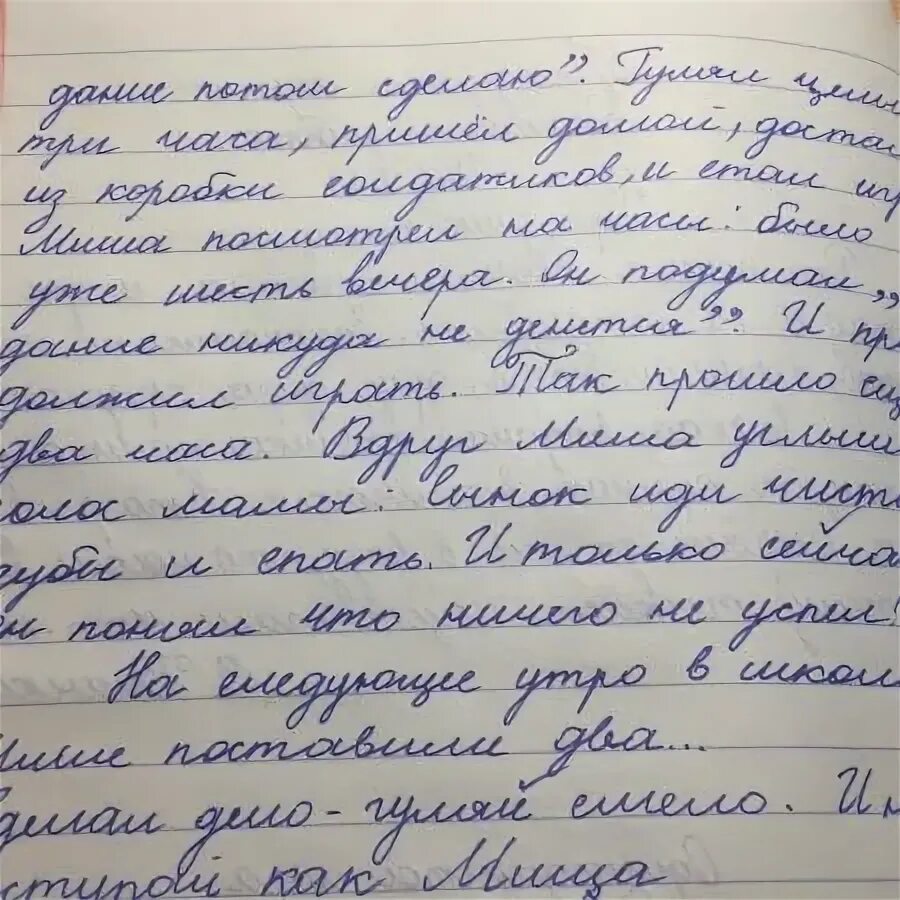 дание потом сделаю”. Гулял целы
три часа, пришёл домой, доста
из коробки солдатиков, и стал иг
Миша посмотрел на часы: было
уже шесть вечера. Он подумал „
дание никуда не денется”. И пр
должил играть. Так прошло ещ
два часа. Вдруг Миша услыш
олос мамы: Сынок иди чист
зубы и спать. И только сейча
н понял что ничего не успел!
На следующее утро в школ
Мише поставили два...
Сделал дело - гуляй смело. И н
ступай как Миша